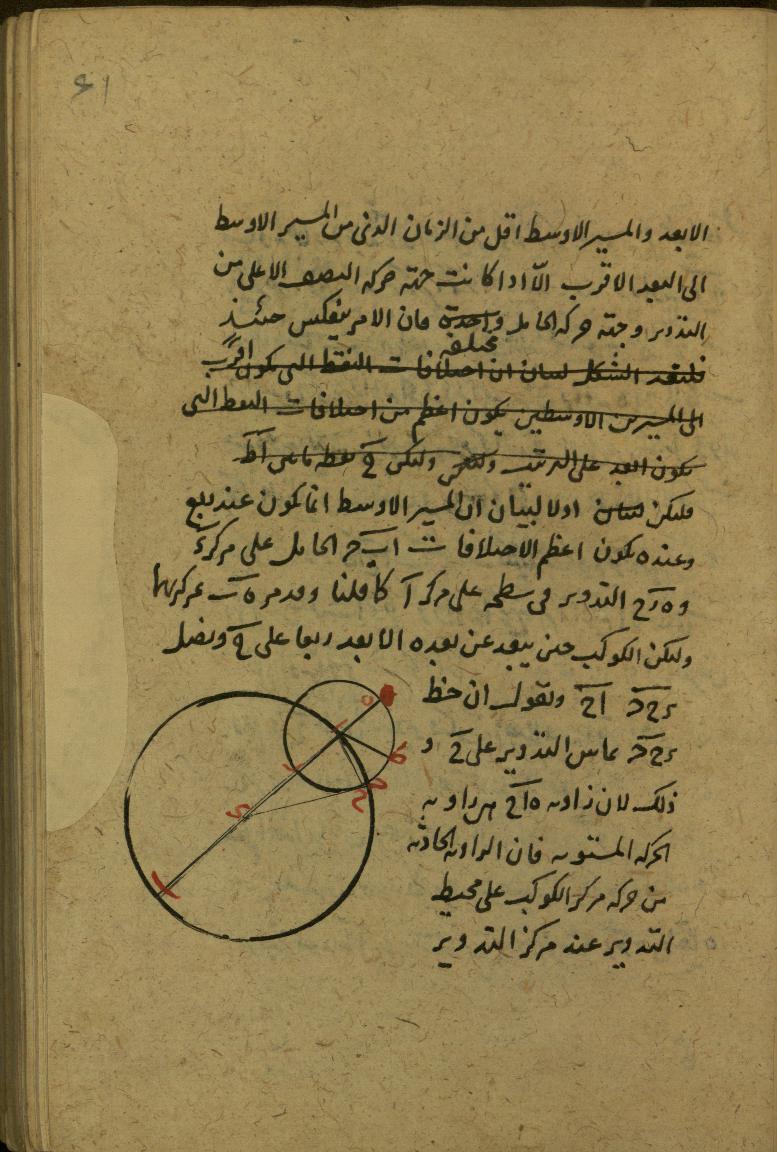 ٤١
الابعد والمسير الاوسط اقل من الزمان الذى من المسير الاوسط
الى البعد الاقرب الّا اذا كانت جهة حركة النصف الاعلى من
التدوير وجهة حركة الحامل واحدة فان الامر ينعكس حينئذ
مختلفة
فلنعد الشكل لبيان ان اختلافات النقط التى تكون اقرب
الى المسيرين الاوسطين يكون اعظم من اختلافات النقط التى
تكون ابعد على الترتيب ولكن
فليكن لبيان اولا لبيان ان المسير الاوسط انما يكون عند ربع
وعنده يكون اعظم الاختلافات ابج الحامل على مركز ء
و ه ر ح التدوير فى سطحه على مركز آ كما قلنا وقد مر ه ب بمركزيهما
وليكن الكوكب حين يبعد عن بعده الابعد ربعا على ح ونصل
ءح اح ونقول ان خط
ءح يماس التدوير على ح و
ذلك لان زاوية ه ا ح من زاوية
الحركة المستوية فان الزاوية الحادثة
من حركة مركز الكوكب على محيط
التدوير عند مركز التدوير